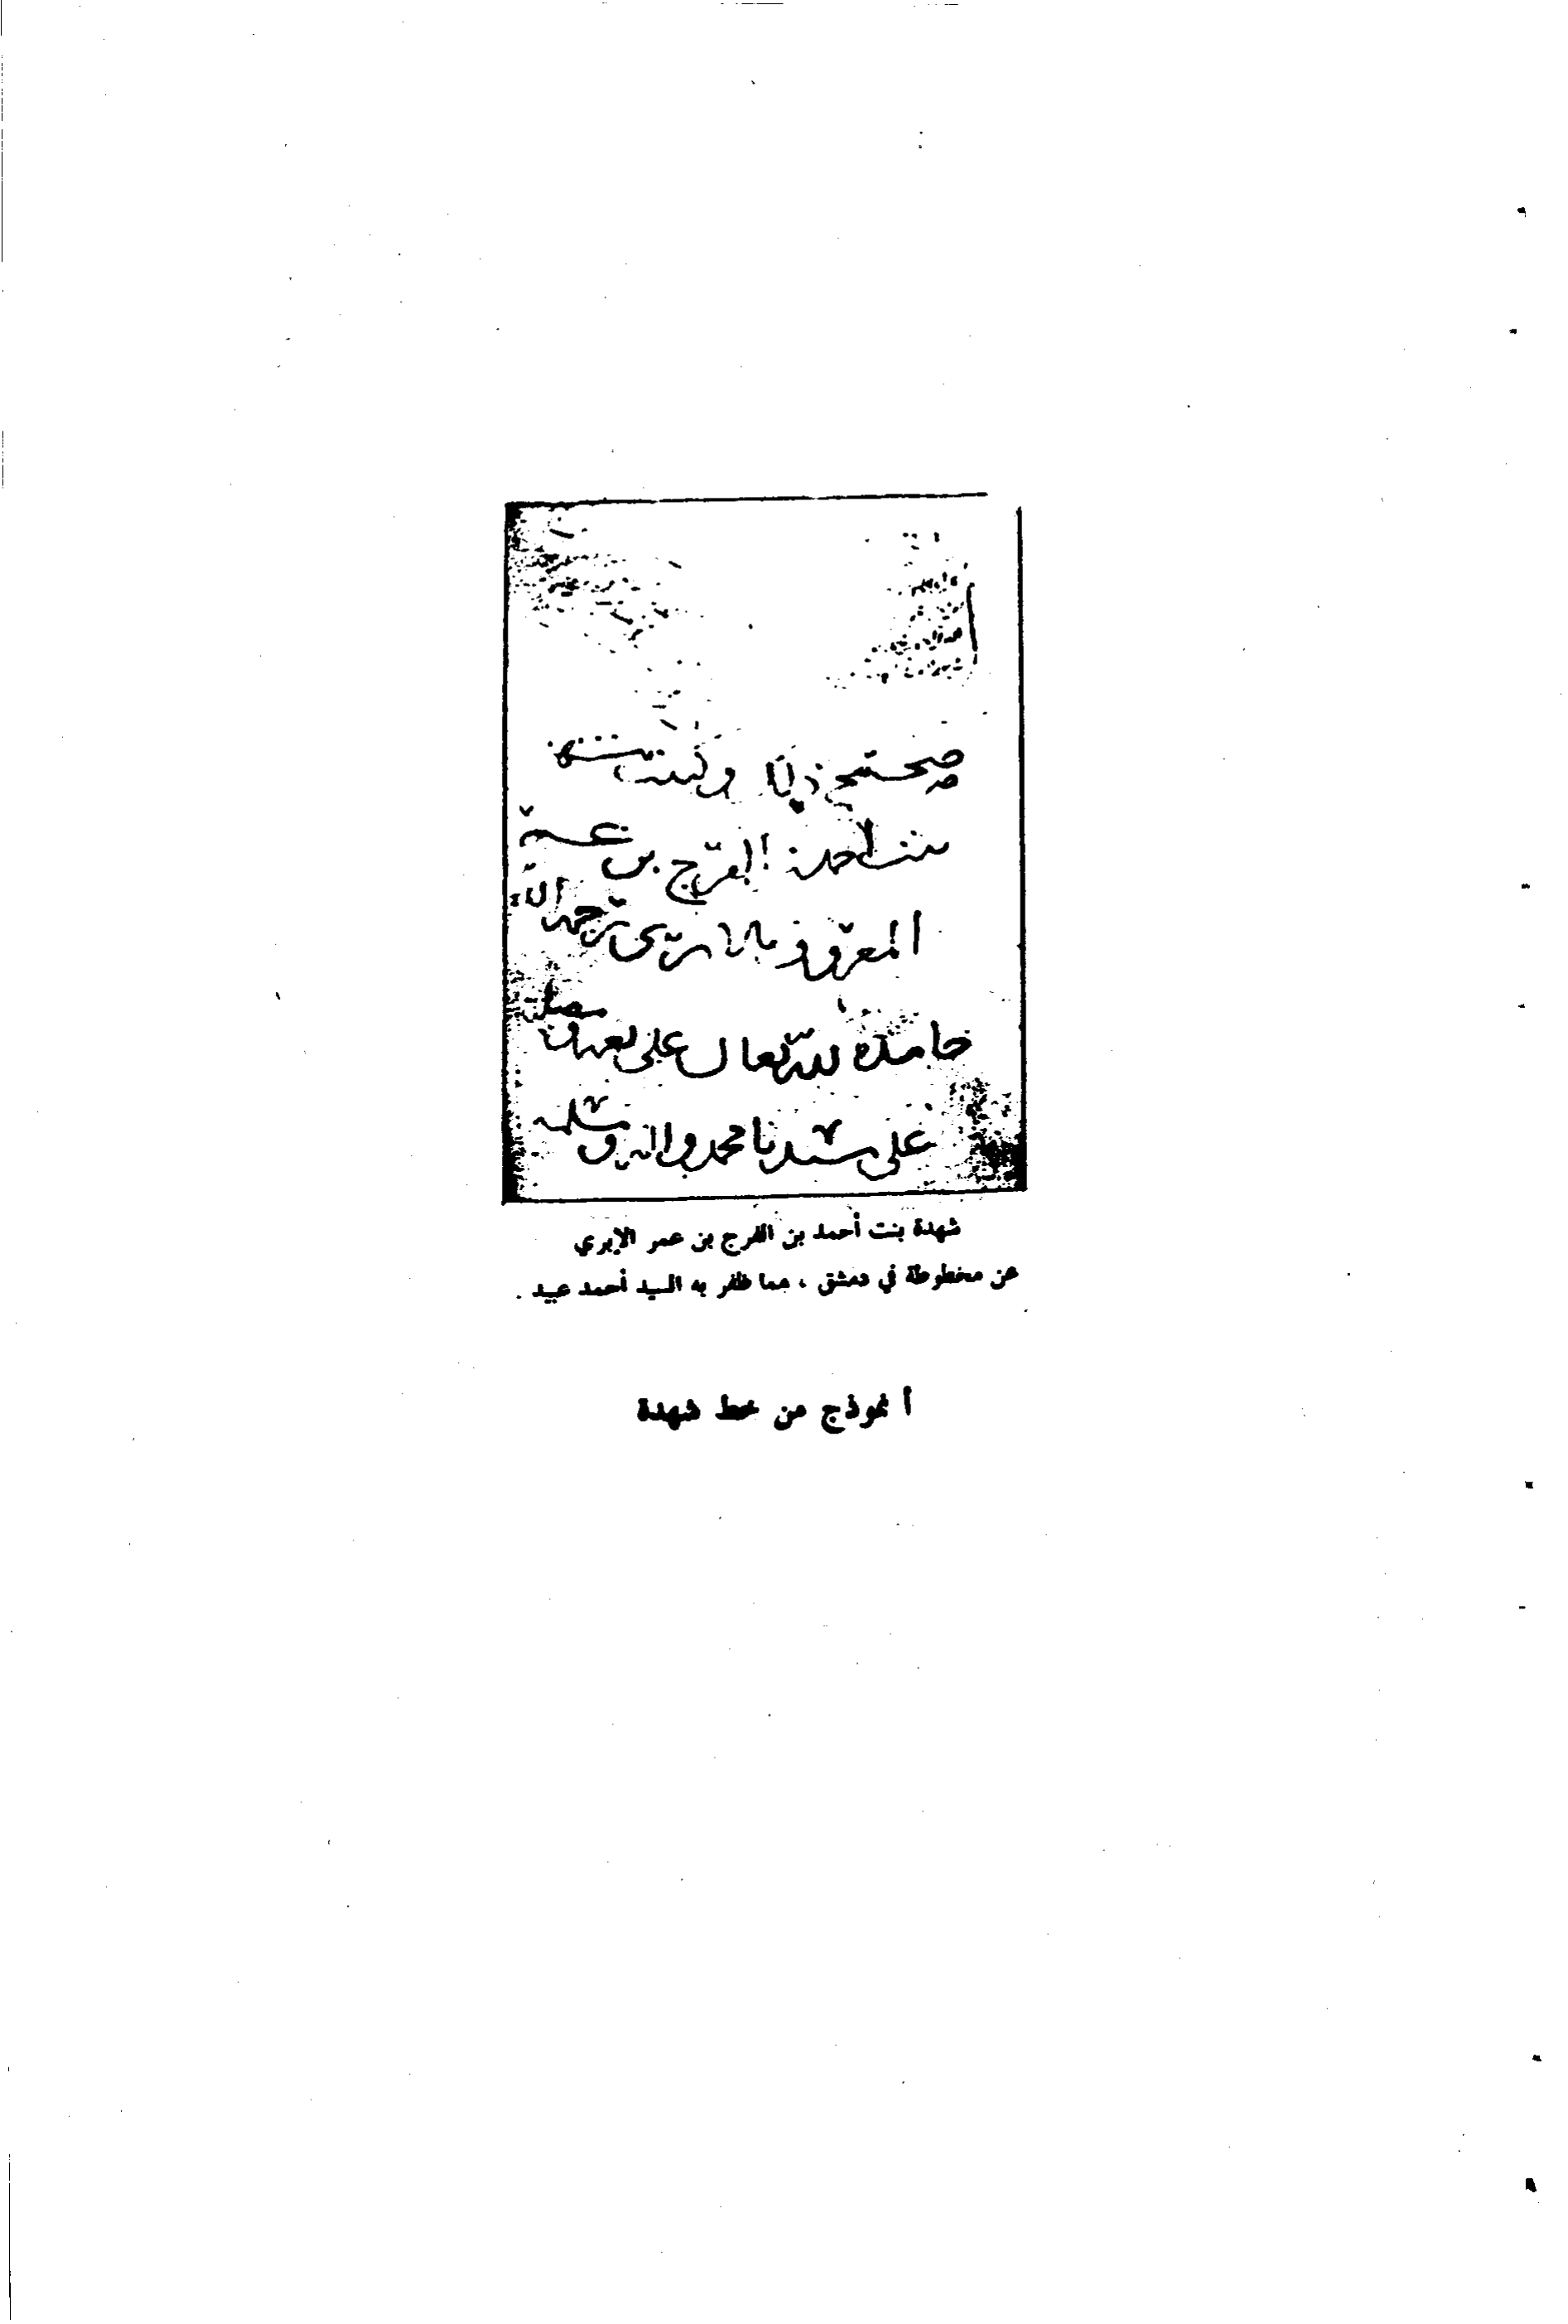 صحيح ذلك وكتبت شهدة
بنت أحمد بن الفرج بن عمر
المعروف بالابري رحمه الله
حامدة لله تعالى على نعمه
على سيدنا محمد واله وسلم
شهدة بنت أحمد بن الفرج بن عمر الإبري
عن مخطوطة في دمشق ، مما ظفر به السيد أحمد عبيد .
أنموذج من خط شهدة